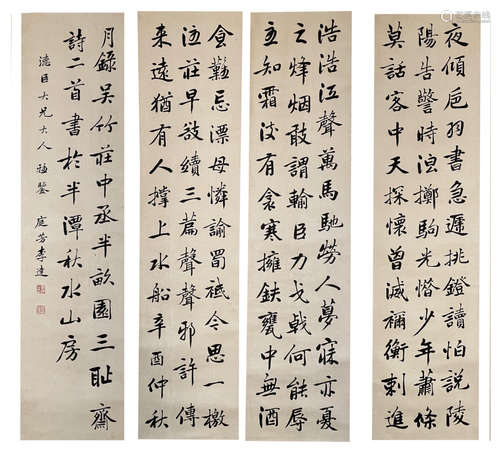 夜傾巵羽書急遞挑鐙讀怕說陵
陽告警時浪擲駒光惜少年蕭條
莫話客中天探懷曾滅禰衡刺進
浩浩江聲萬馬馳勞人夢寐亦憂
之烽烟敢謂輸臣力戈戟何能辱
主知霜後有衾寒擁鈇甕中無酒
會難忌漂母憐論蜀祇今思一檄
注莊早敚續三篇聲聲邪許傳
来遠猶有人撑上水船辛酉仲秋
月錄吴竹莊中丞半畝園三耻齋
詩二首書於半潭秋水山房
大兄大人 鑒 庭芳李逵